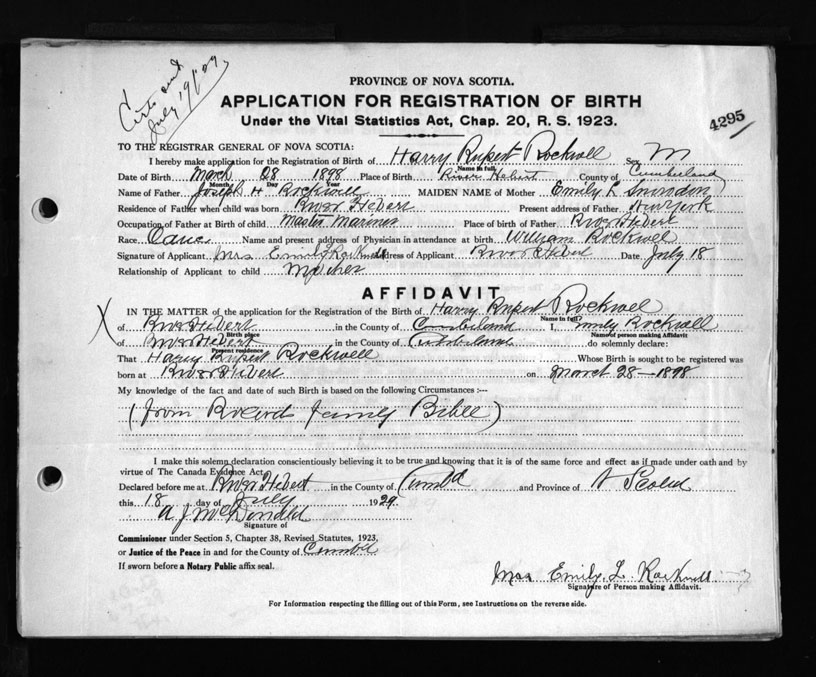 Certs sent
July 19/29
PROVINCE OF NOVA SCOTIA.
APPLICATION FOR REGISTRATION OF BIRTH
Under the Vital Statistics Act, Chap. 20, R. S. 1923.
4295
TO THE REGISTRAR GENERAL OF NOVA SCOTIA:
I hereby make application for the Registration of Birth of Harry Rupert Rockwell Sex M
Name in full
Date of Birth March 28 1898 Place of Birth River Hebert County of Cumberland
Month Day Year
Name of Father Joseph H Rockwell MAIDEN NAME of Mother Emily L
Residence of Father when child was born River Hebert Present address of Father
Occupation of Father at Birth of child Master Mariner Place of birth of Father River Hebert
Race Name and present address of Physician in attendance at birth William Rockwell
Signature of Applicant Mrs Emily Rockwell Address of Applicant River Hebert Date July 18
Relationship of Applicant to child Mother
AFFIDAVIT
IN THE MATTER of the application for the Registration of the Birth of Harry Rupert Rockwell
Name in full
of River Hebert in the County of Cumberland I, Emily Rockwell
Birth place Name of person making Affidavit
of River Hebert in the County of Cumberland do solemnly declare:
Present residence
That Harry Rupert Rockwell Whose Birth is sought to be registered was
born at River Hebert on March 28 - 1898
My knowledge of the fact and date of such Birth is based on the following Circumstances :—
(from Record family Bible)
I make this solemn declaration conscientiously believing it to be true and knowing that it is of the same force and effect as if made under oath and by
virtue of The Canada Evidence Act.
Declared before me at River Hebert in the County of Cumb'd and Province of N Scotia
this 18 day of July 1929
A. J. McDonald
Signature of
Commissioner under Section 5, Chapter 38, Revised Statutes, 1923,
or Justice of the Peace in and for the County of Cumb'd
If sworn before a Notary Public affix seal.
Mrs Emily L. Rockwell
Signature of Person making Affidavit.
For Information respecting the filling out of this Form, see Instructions on the reverse side.